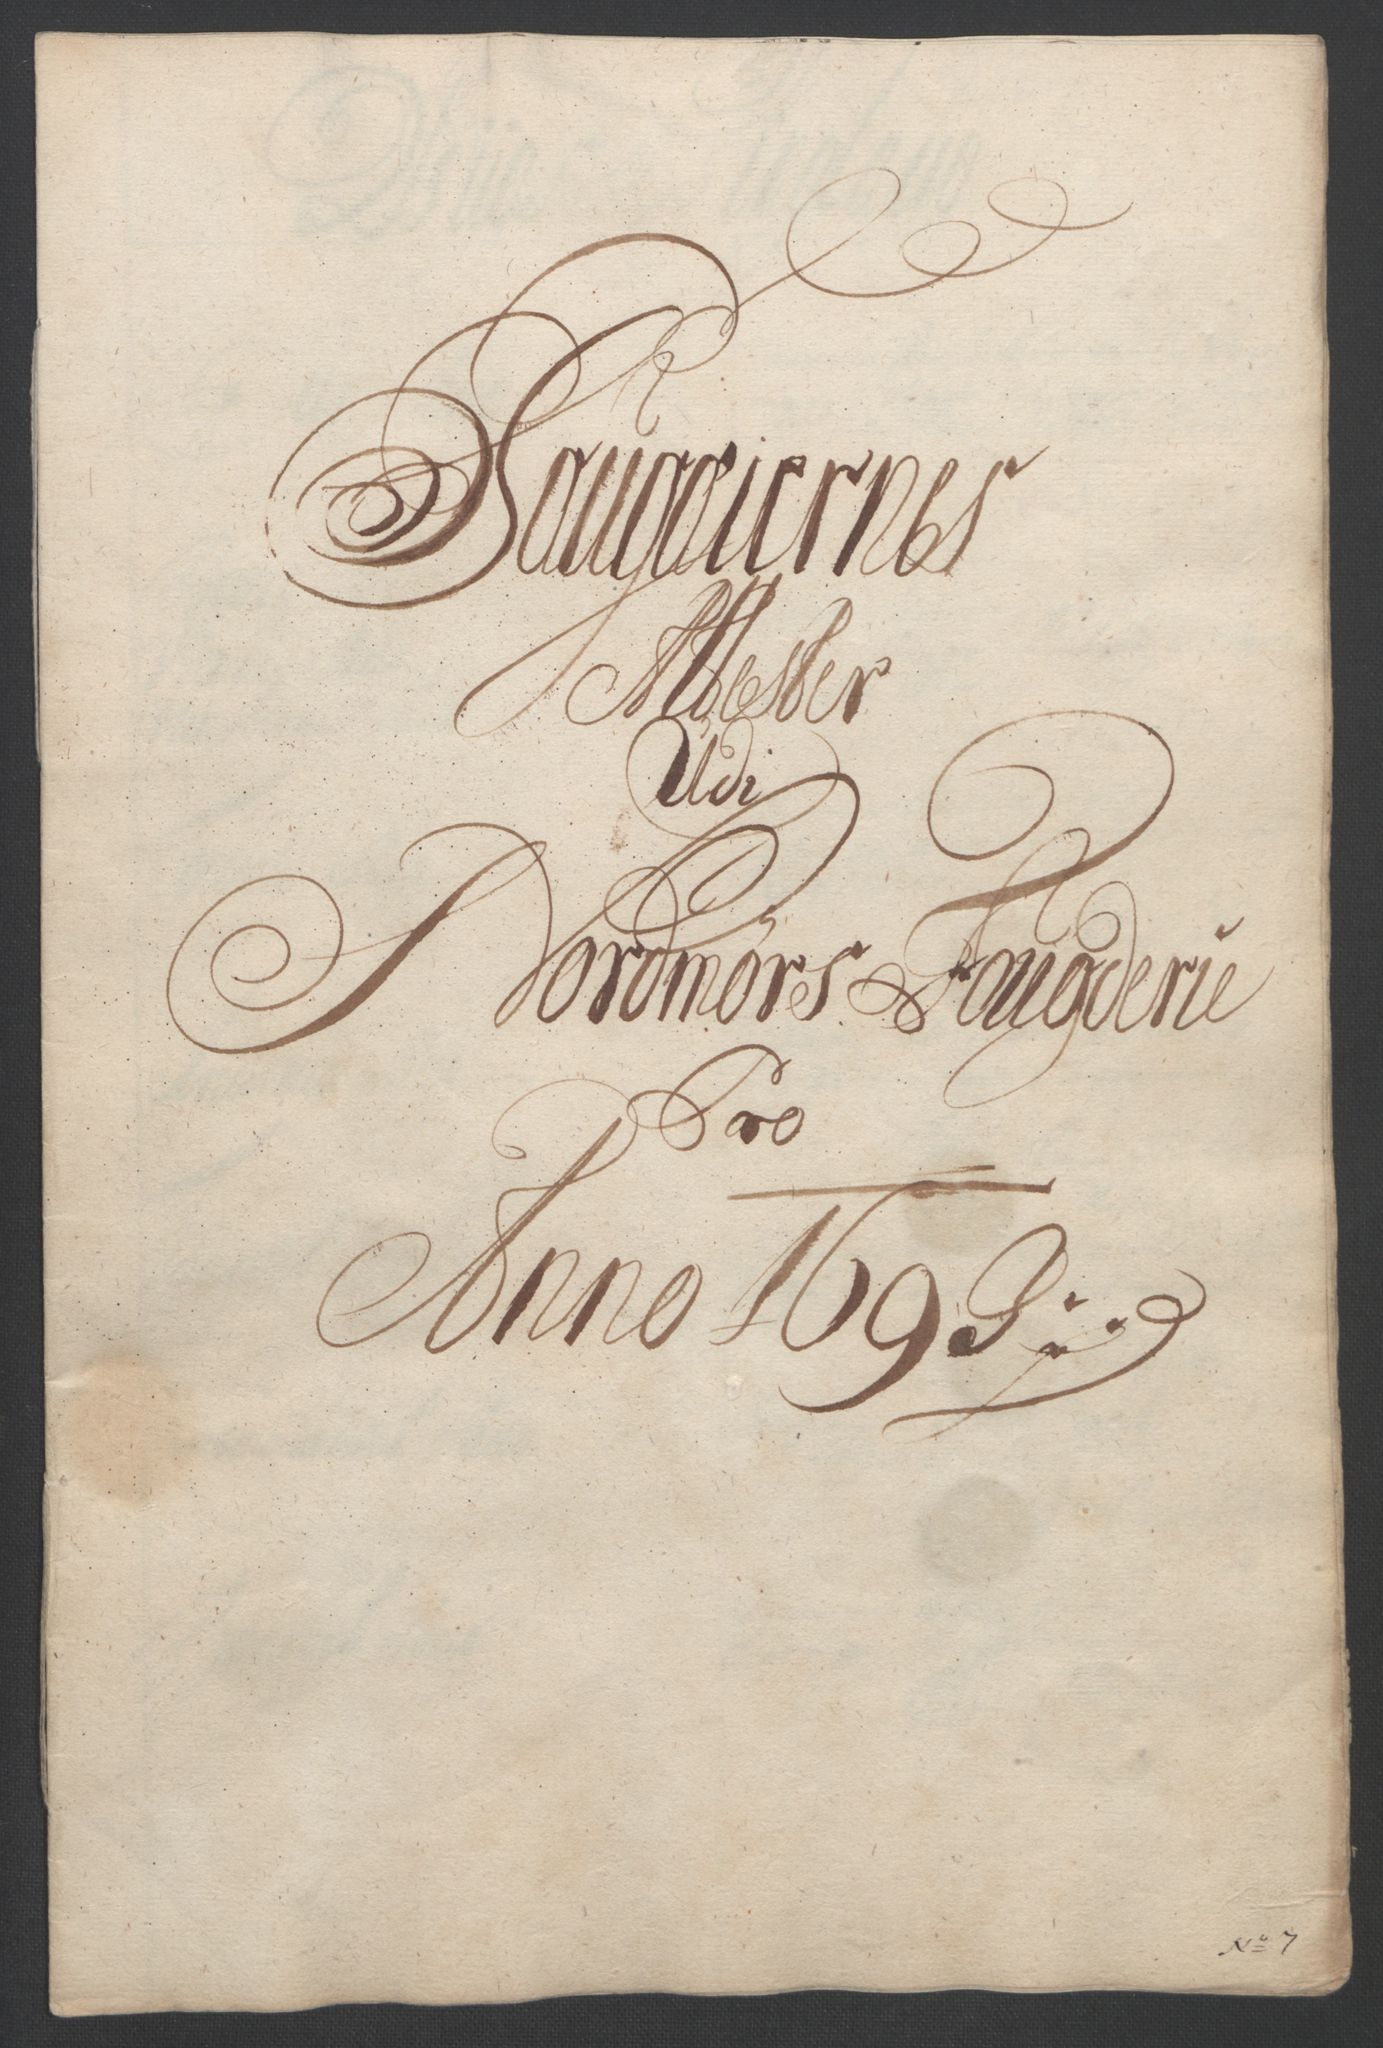 Saugeiernes
Attester
Udi
Nordmørs Faugderie
Pro
Anno 1693
No 7